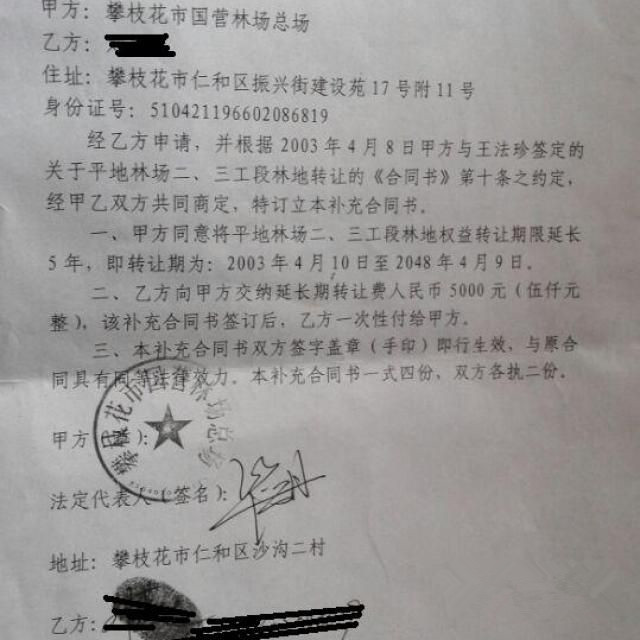 甲方：攀枝花市国营林场总场
乙方：
住址：攀枝花市仁和区振兴街建设苑 17 号附 11 号
身份证号：510421196602086819
经乙方申请，并根据 2003 年 4 月 8 日甲方与王法珍签定的
关于平地林场二、三工段林地转让的《合同书》第十条之约定，
经甲乙双方共同商定，特订立本补充合同书。
一、甲方同意将平地林场二、三工段林地权益转让期限延长
5 年，即转让期为：2003 年 4 月 10 日至 2048 年 4 月 9 日。
二、乙方向甲方交纳延长期转让费人民币 5000 元（伍仟元
整），该补充合同书签订后，乙方一次性付给甲方。
三、本补充合同书双方签字盖章（手印）即行生效，与原合
同具有同等法律效力。本补充合同书一式四份，双方各执二份。
甲方（ ）：
法定代表人（签名）：
地址：攀枝花市仁和区沙沟二村
乙方：